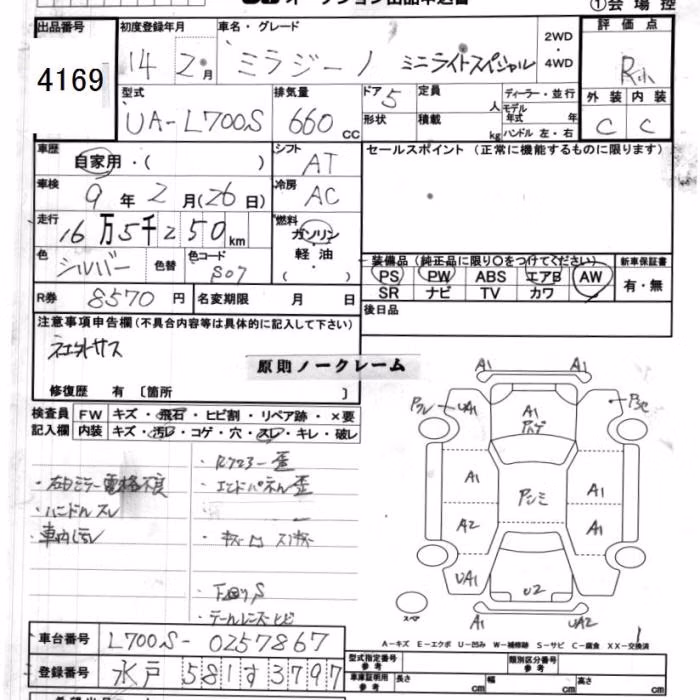 ①会場控
出品番号
4169
初度登録年月
14 2 月
車名・グレード
ミラジーノ ミニライトスペシャル
2WD
・
4WD
評価点
R小
型式
UA-L700S
排気量
660 CC
ドア 5
形状
定員 人
積載 kg
ディーラー・並行
モデル
年式 年
ハンドル 左・右
外装 内装
C C
車歴
自家用・( )
シフト
AT
セールスポイント(正常に機能するものに限ります)
車検
9 年 2 月(26日)
冷房
AC
走行
16万5千250km
燃料
ガソリン
軽油
( )
色
シルバー
色替
色コード
S07
装備品(純正品に限り〇をつけてください)
PS PW ABS エアB AW
SR ナビ TV カワ
新車保証書
有・無
R券 8570 円
名変期限 月 日
後日品
注意事項申告欄(不具合内容等は具体的に記入して下さい)
原則ノークレーム
修復歴 有〔箇所 〕
検査員
記入欄
FW キズ・飛石・ヒビ割・リペア跡・×要
内装 キズ・汚レ・コゲ・穴・スレ・キレ・破レ
・右ドミラー電格不良
・ハンドルスレ
・車内汚レ
・エンドパネル歪
・下回りS
・テールレンズヒビ
A1 A1
UA1
A1
A1 A1
A2 A1
UA1 U2
スペア
A1 UA2
A-キズ E-エクボ U-凹み W-補修跡 S-サビ C-腐食 XX-交換済
車台番号 L700S-0257867
登録番号 水戸 581 す 3797
型式指定番号
参考
類別区分番号
参考
車庫証明用
参考
長さ cm
幅 cm
高さ cm